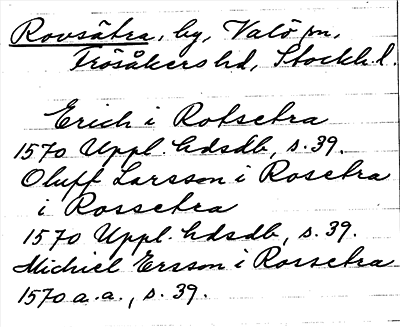 Rovsätra, by, Valö sn,
Frösåkers hd, Stockh. l.
Erich i Rotsetra
1570 Uppl. hdsdb, s. 39.
Oluff Larsson i Rosetra
i Rossetra
1570 Uppl. hdsdb, s. 39.
Michiel Ersson i Rossetra
1570 a.a., s. 39.